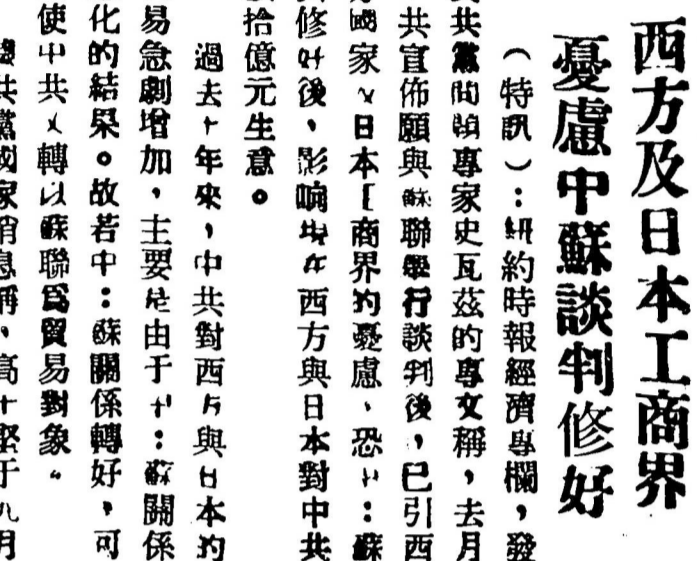 西方及日本工商界
憂慮中蘇談判修好
（特訊）：紐約時報經濟專欄，發
共黨問題專家史瓦茲的專文稱，去月
共官佈願與蘇聯舉行談判後，已引西
國家及日本工商界的憂慮、恐中：蘇
修好後，影响現在西方與日本對中共
拾億元生意。
過去十年來，中共對西方與日本的
易急劇增加，主要是由于中：蘇關係
化的結果。故若中：蘇關係轉好，可
使中共又轉以蘇聯爲貿易對象。
共黨國家消息稱，高十堅于九月